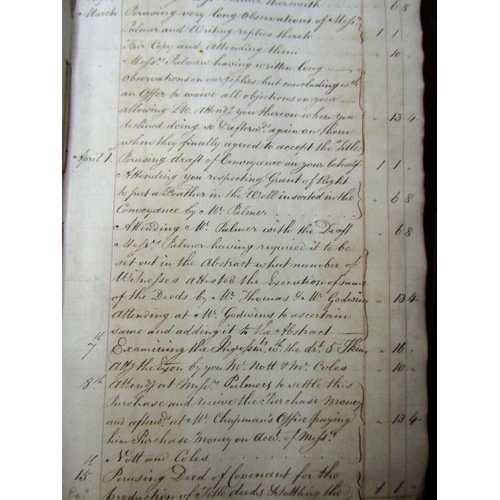 therewith 6 8
March Perusing very long Observations of Messrs
Palmer and Writing replies thereto 1 1 "
Fair Copy and Attending them " 10 "
Messrs Palmers having written long
Observations on our replies but concluding with
an Offer to waive all objections on your
allowing Attendg you thereon when you " 13 4
declined doing so & afterwds again on them
when they finally agreed to accept the Title
April 1 Perusing draft of Conveyance on your behalf 1 1 "
Attending you respecting Grant of Right
to put a Feather in the Well inserted in the " 6 8
Conveyance by Mr Palmer
Attending Mr Palmer with the Draft " 6 8
Messrs Palmer having required it to be
set out in the Abstract what number of
Witnesses attested the Execution of some
of the Deeds by Mr Thomas & Mr Godwin " 13 4
Attending at Mr Godwins to ascertain
same and adding it to the Abstract
7th Examining the Ingrossmt wth the dft 5 Skins " 16 "
Attg the by you Mr Nott & Mr Coles " 10 "
8th Attendg at Messrs Palmers to settle this
Purchase and receive the Purchase Money
and afterwds at Mr Chapman's Office paying " 13 4
him Purchase Money on Acct of Messrs
Nott and Coles
15th Perusing Deed of Covenant for the
production of Title deeds & settling the 1 1 "